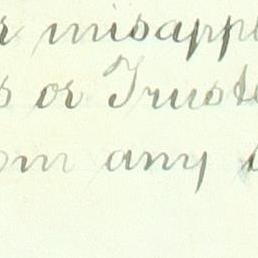 r misappl
s or Truste
om any